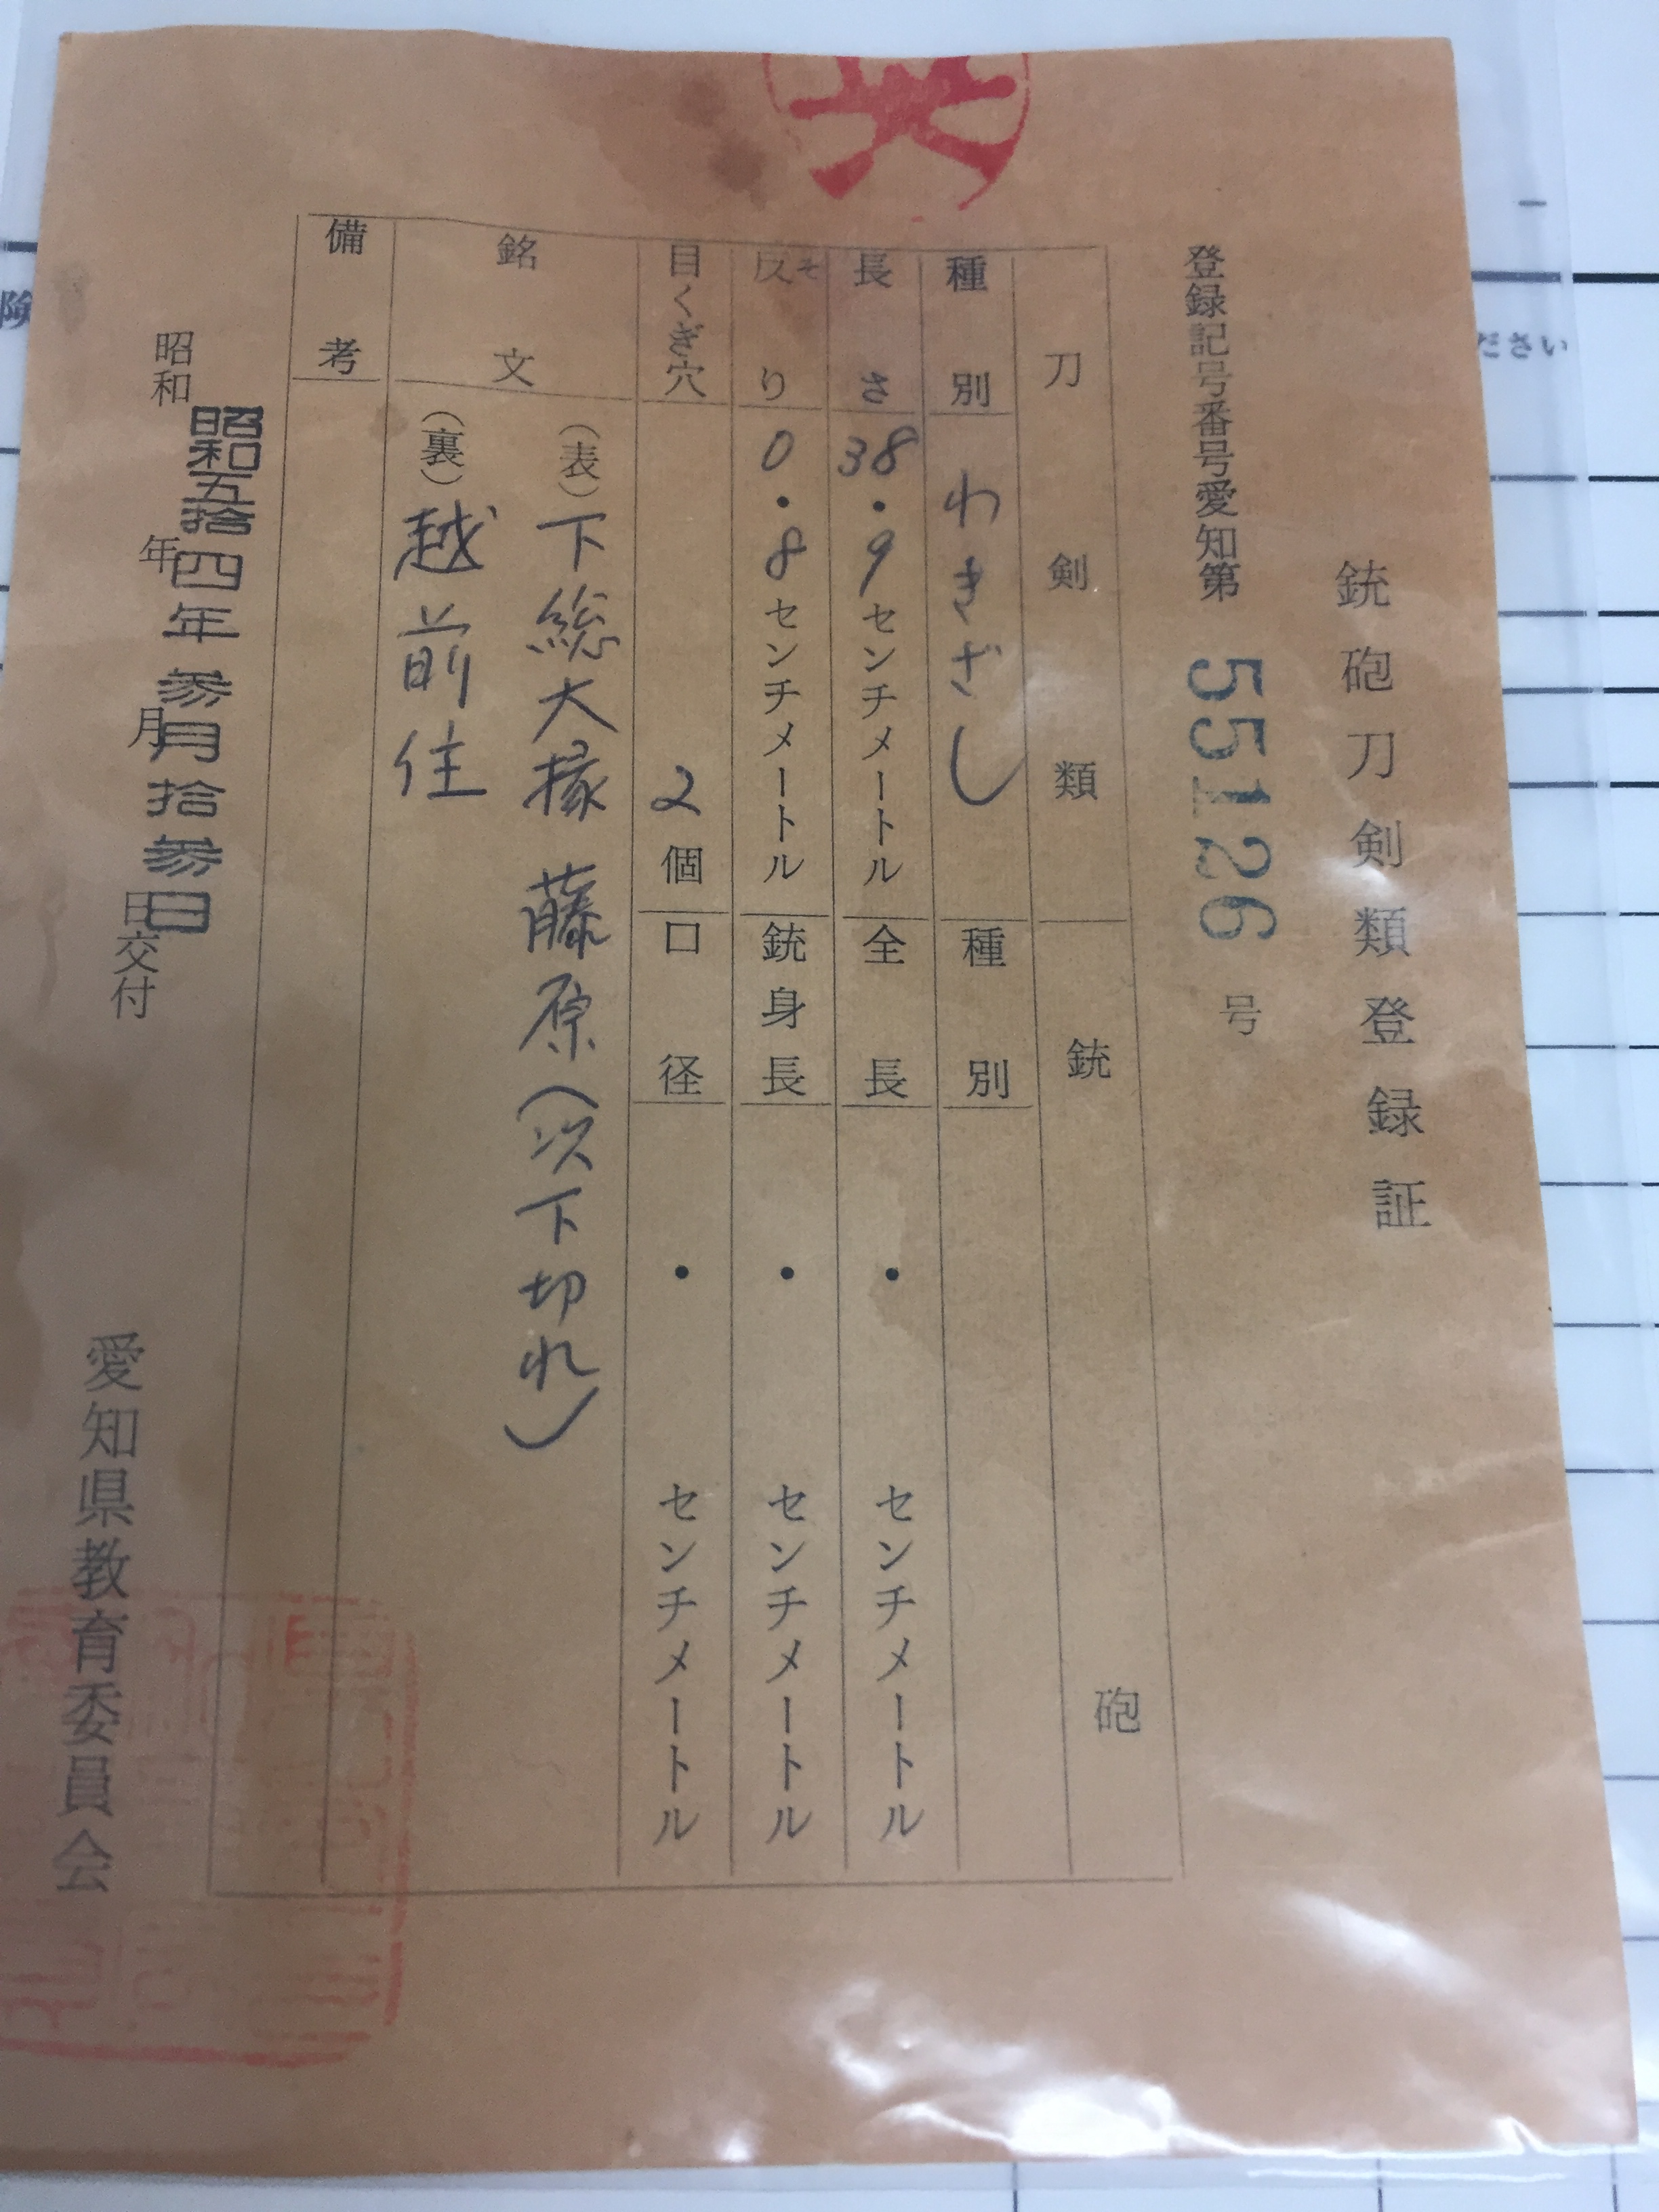 銃砲刀剣類登録証
登録記号番号愛知第 55126 号
刀剣類 銃砲
種別 わきざし 種別
長さ 38・9センチメートル 全長 ・ センチメートル
反り 0・8センチメートル 銃身長 ・ センチメートル
そ
目くぎ穴 2個 口径 ・ センチメートル
銘文 (表)下総大掾 藤原(以下切れ)
(裏)越前住
備考
昭和五拾四年参月拾参日
昭和 年 月 日交付
愛知県教育委員会
険
ださい